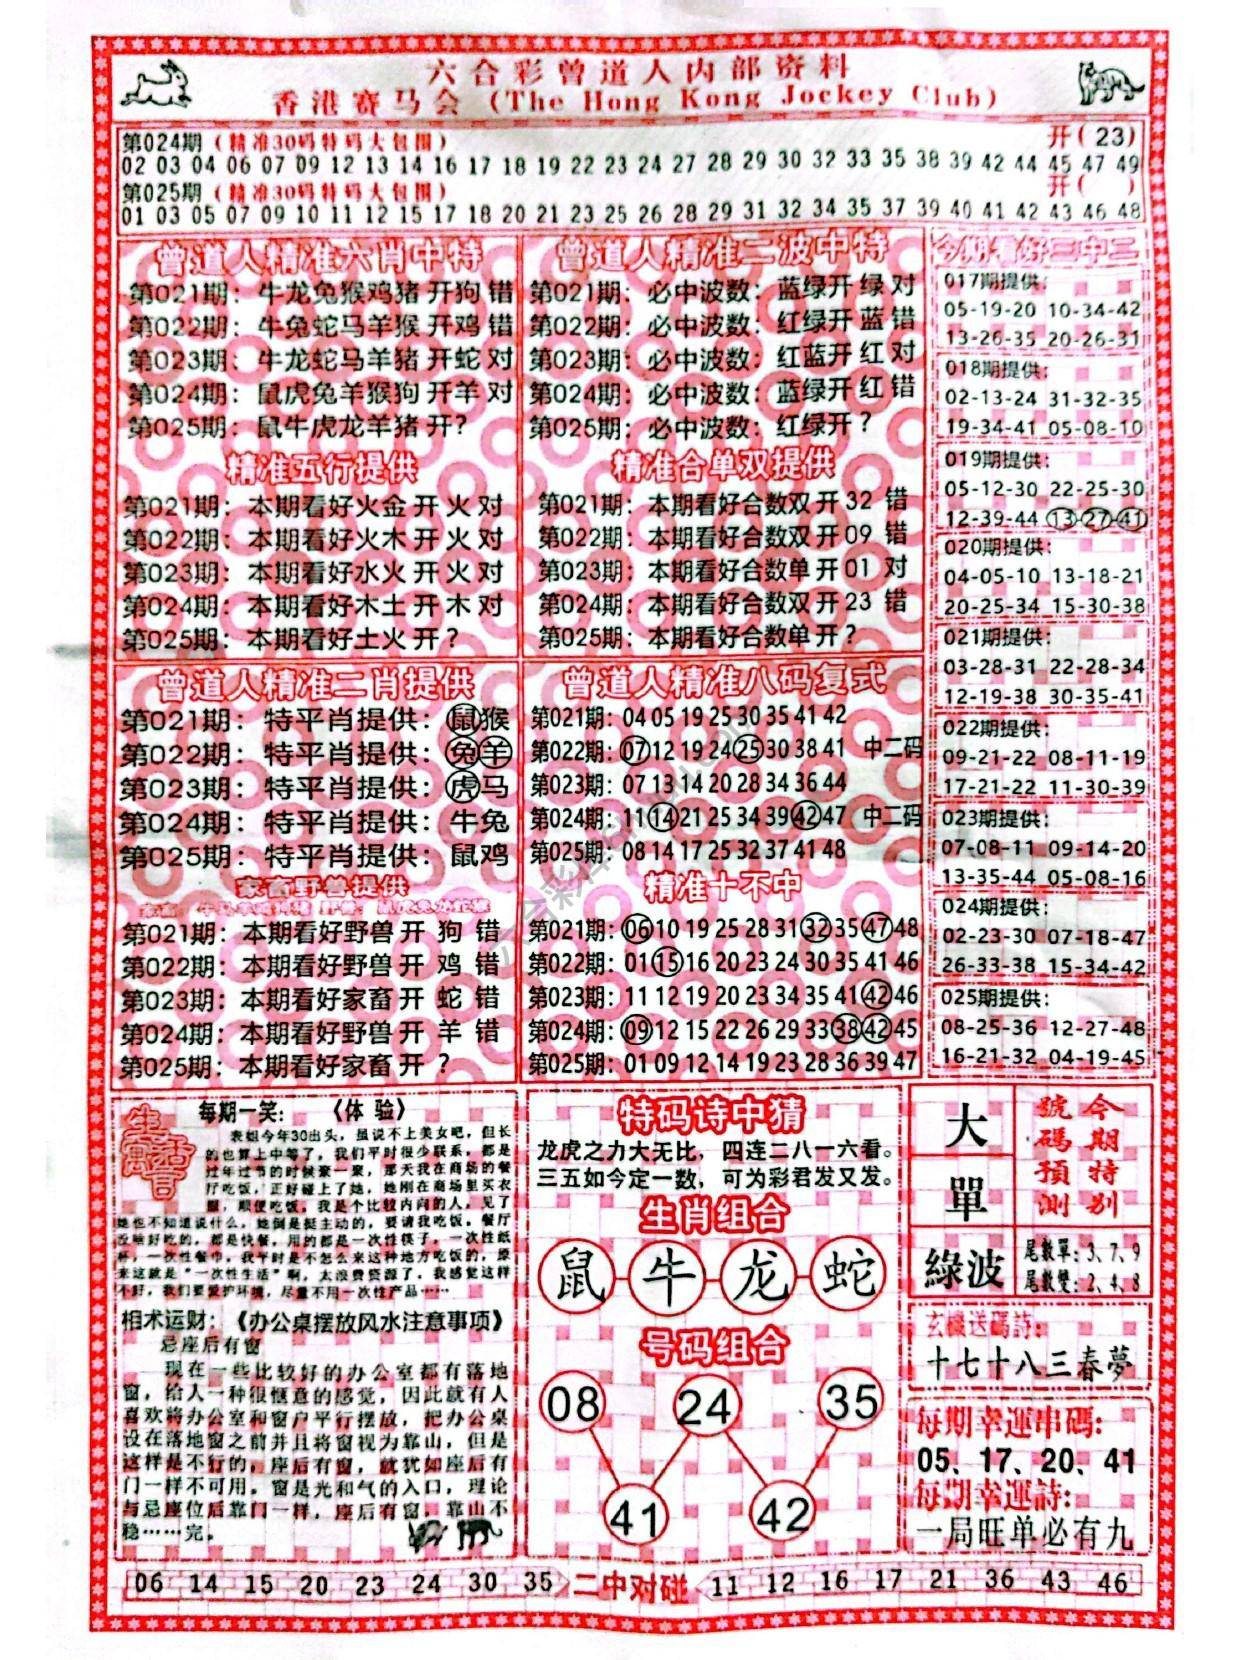 六合彩曾道人内部资料
香港赛马会 (The Hong Kong Jockey Club)
第024期(精准30码特码大包围) 开(23)
02 03 04 06 07 09 12 13 14 16 17 18 19 22 23 24 27 28 29 30 32 33 35 38 39 42 44 45 47 49
第025期(精准30码特码大包围) 开( )
01 03 05 07 09 10 11 12 15 17 18 20 21 23 25 26 28 29 31 32 34 35 37 39 40 41 42 43 46 48
曾道人精准六肖中特
第021期：牛龙兔猴鸡猪开狗错
第022期：牛兔蛇马羊猴开鸡错
第023期：牛龙蛇马羊猪开蛇对
第024期：鼠虎兔羊猴狗开羊对
第025期：鼠牛虎龙羊猪开?
精准五行提供
第021期：本期看好火金开火对
第022期：本期看好火木开火对
第023期：本期看好水火开火对
第024期：本期看好木土开木对
第025期：本期看好土火开?
曾道人精准二波中特
第021期：必中波数：蓝绿开绿对
第022期：必中波数：红绿开蓝错
第023期：必中波数：红蓝开红对
第024期：必中波数：蓝绿开红错
第025期：必中波数：红绿开?
精准合单双提供
第021期：本期看好合数双开32 错
第022期：本期看好合数双开09 错
第023期：本期看好合数单开01 对
第024期：本期看好合数双开23 错
第025期：本期看好合数单开?
今期看好三中二
017期提供：
05-19-20 10-34-42
13-26-35 20-26-31
018期提供：
02-13-24 31-32-35
19-34-41 05-08-10
019期提供：
05-12-30 22-25-30
12-39-44 13-27-41
020期提供：
04-05-10 13-18-21
20-25-34 15-30-38
021期提供：
03-28-31 22-28-34
12-19-38 30-35-41
022期提供：
09-21-22 08-11-19
17-21-22 11-30-39
023期提供：
07-08-11 09-14-20
13-35-44 05-08-16
024期提供：
02-23-30 07-18-47
26-33-38 15-34-42
025期提供：
08-25-36 12-27-48
16-21-32 04-19-45
曾道人精准二肖提供
第021期：特平肖提供：鼠猴
第022期：特平肖提供：兔羊
第023期：特平肖提供：虎马
第024期：特平肖提供：牛兔
第025期：特平肖提供：鼠鸡
家畜野兽提供
第021期：本期看好野兽开 狗 错
第022期：本期看好野兽开 鸡 错
第023期：本期看好家畜开 蛇 错
第024期：本期看好野兽开 羊 错
第025期：本期看好家畜开 ?
曾道人精准八码复式
第021期：04 05 19 25 30 35 41 42
第022期：07 12 19 24 25 30 38 41 中二码
第023期：07 13 14 20 28 34 36 44
第024期：11 14 21 25 34 39 42 47 中二码
第025期：08 14 17 25 32 37 41 48
精准十不中
第021期：06 10 19 25 28 31 32 35 47 48
第022期：01 15 16 20 23 24 30 35 41 46
第023期：11 12 19 20 23 34 35 41 42 46
第024期：09 12 15 22 26 29 33 38 42 45
第025期：01 09 12 14 19 23 28 36 39 47
生活寓言
每期一笑： 《体 验》
表姐今年30出头，虽说不上美女吧，但长
的也算上中等了，我们平时很少联系，都是
过年过节的时候聚一聚，那天我在商场的餐
厅吃饭，正好碰上了她，她刚在商场里买衣
服，顺便吃饭。我是个比较内向的人，见了
她也不知道说什么，她倒是挺主动的，要请我吃饭。餐厅
没啥好吃的，都是快餐，用的都是一次性筷子，一次性纸
杯，一次性餐巾，我平时是不怎么来这种地方吃饭的，原
来这就是“一次性生活”啊，太浪费资源了，我感觉这样
不好，我们要爱护环境，尽量不用一次性产品……
相术运财：《办公桌摆放风水注意事项》
忌座后有窗
现在一些比较好的办公室都有落地
窗，给人一种很惬意的感觉，因此就有人
喜欢将办公室和窗户平行摆放，把办公桌
设在落地窗之前并且将窗视为靠山，但是
这样是不行的，座后有窗，就犹如座后有
门一样不可用。窗是光和气的入口，理论
与忌座位后靠门一样，座后有窗，靠山不
稳……完。
特码诗中猜
龙虎之力大无比，四连二八一六看。
三五如今定一数，可为彩君发又发。
生肖组合
鼠 牛 龙 蛇
号码组合
08 24 35
41 42
今期特别
號碼預測
大
單
綠波
尾數單：3、7、9
尾數雙：2、4、8
玄機送碼詩：
十七十八三春夢
每期幸運串碼：
05、17、20、41
每期幸運詩：
一局旺单必有九
06 14 15 20 23 24 30 35 二中对碰 11 12 16 17 21 36 43 46